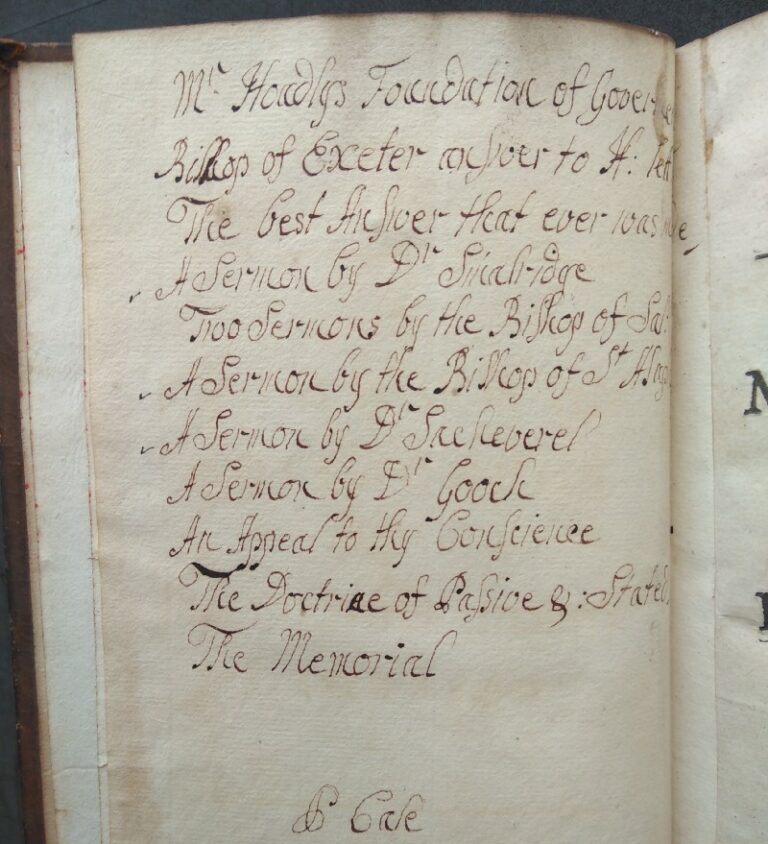 Mr Hoadlys Foundation of Gover
Bishop of Exeter answer to H:
The best Answer that ever was
A Sermon by Dr Smalridge
Two Sermons by the Bishop of Sal:
A Sermon by the Bishop of St Asap
A Sermon by Dr Sacheverel
A Sermon by Dr Gooch
An Appeal to thy Conscience
The Doctrine of Passive &: Stated
The Memorial